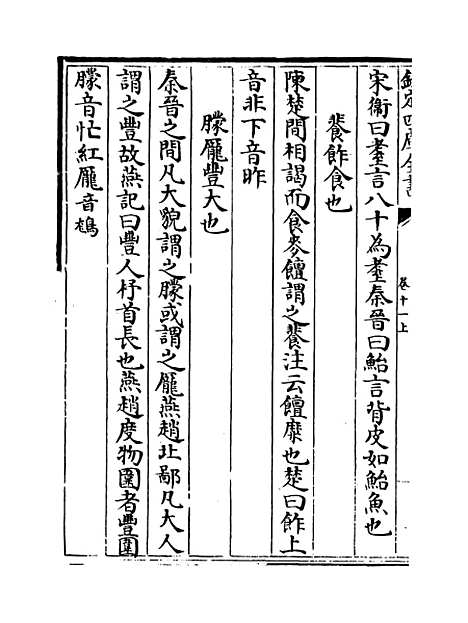 欽定四庫全書
卷十一上
宋衞曰耋言八十為耋秦晉曰鮐言背皮如鮐魚也
餥飵食也
陳楚間相謁而食麥饘謂之餥注云饘糜也楚曰飵上
音非下音昨
朦厖豐大也
秦晉之間凡大貌謂之朦或謂之厖燕趙北鄙凡大人
謂之豐故燕記曰豐人杼首長也燕趙度物圍者豐圍
朦音忙紅厖音鴾